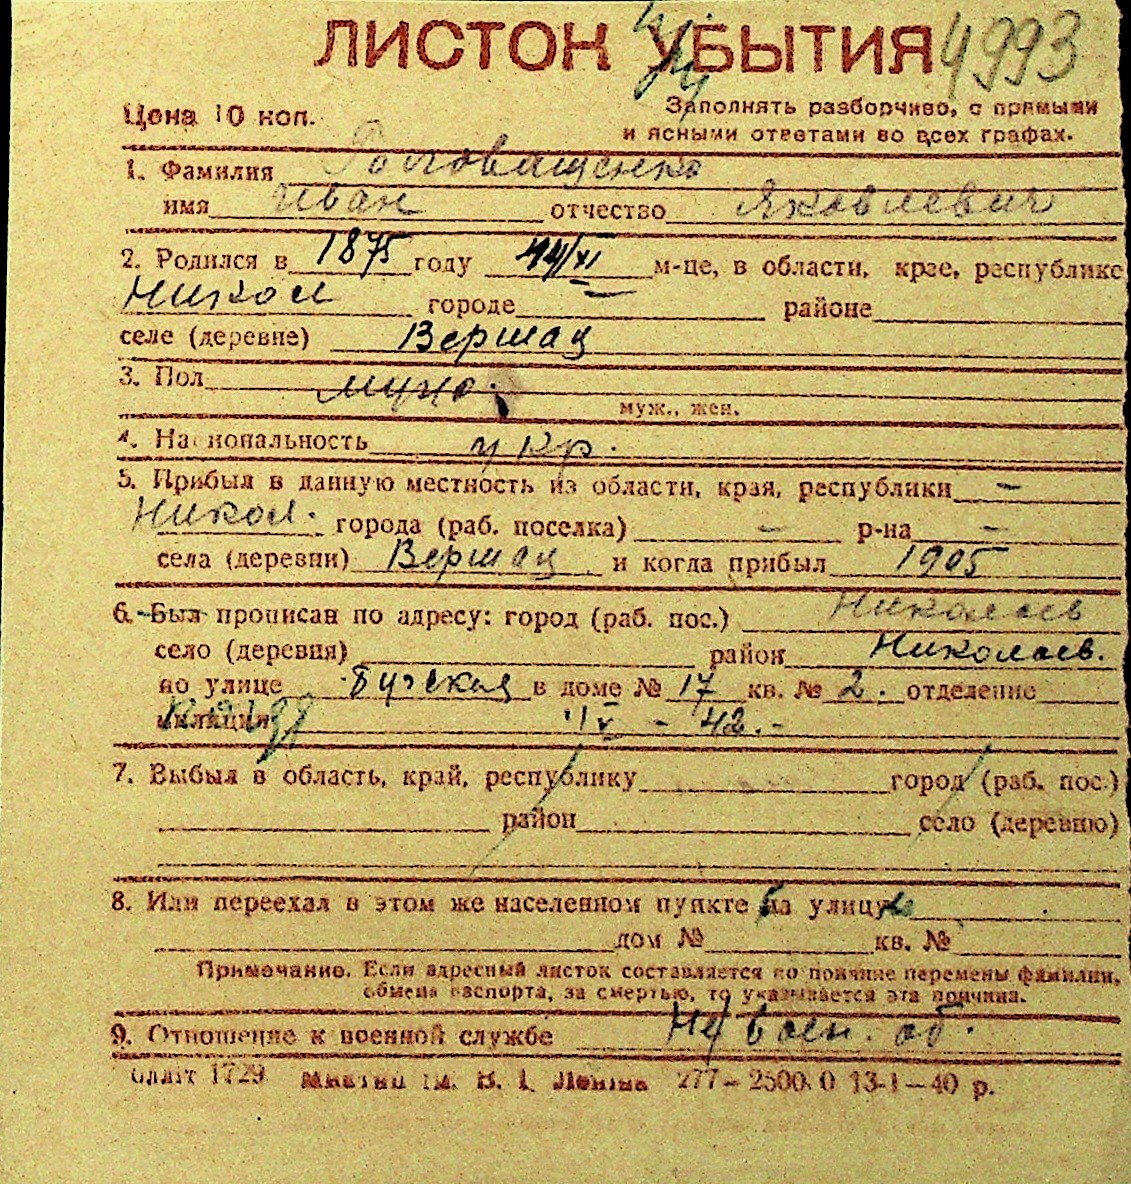 ЛИСТОК УБЫТИЯ 4993
Цена 10 коп.
Заполнять разборчиво, с прямыми
и ясными ответами во всех графах.
1. Фамилия
имя Иван отчество Яковлевич
2. Родился в 1875 году 14/XI м-це, в области, крае, республике
Никол городе районе
селе (деревне) Вершац
3. Пол муж.
муж., жен.
4. Национальность укр.
5. Прибыл в данную местность из области, края, республики –
Никол. города (раб. поселка) – р-на –
села (деревни) Вершац и когда прибыл 1905
6. Был прописан по адресу: город (раб. пос.) Николаев
село (деревня) район Николаев.
по улице Бугская в доме № 17 кв. № 2. отделение
милиции IV – 42. –
7. Выбыл в область, край, республику город (раб. пос.)
район село (деревню)
8. Или переехал в этом же населенном пункте на улицу
дом № кв. №
Примечание. Если адресный листок составляется по причине перемены фамилии,
обмена паспорта, за смертью, то указывается эта причина.
9. Отношение к военной службе Не воен. об.
1729 им. В. І. Леніна 277–2500.0 13-І–40 р.